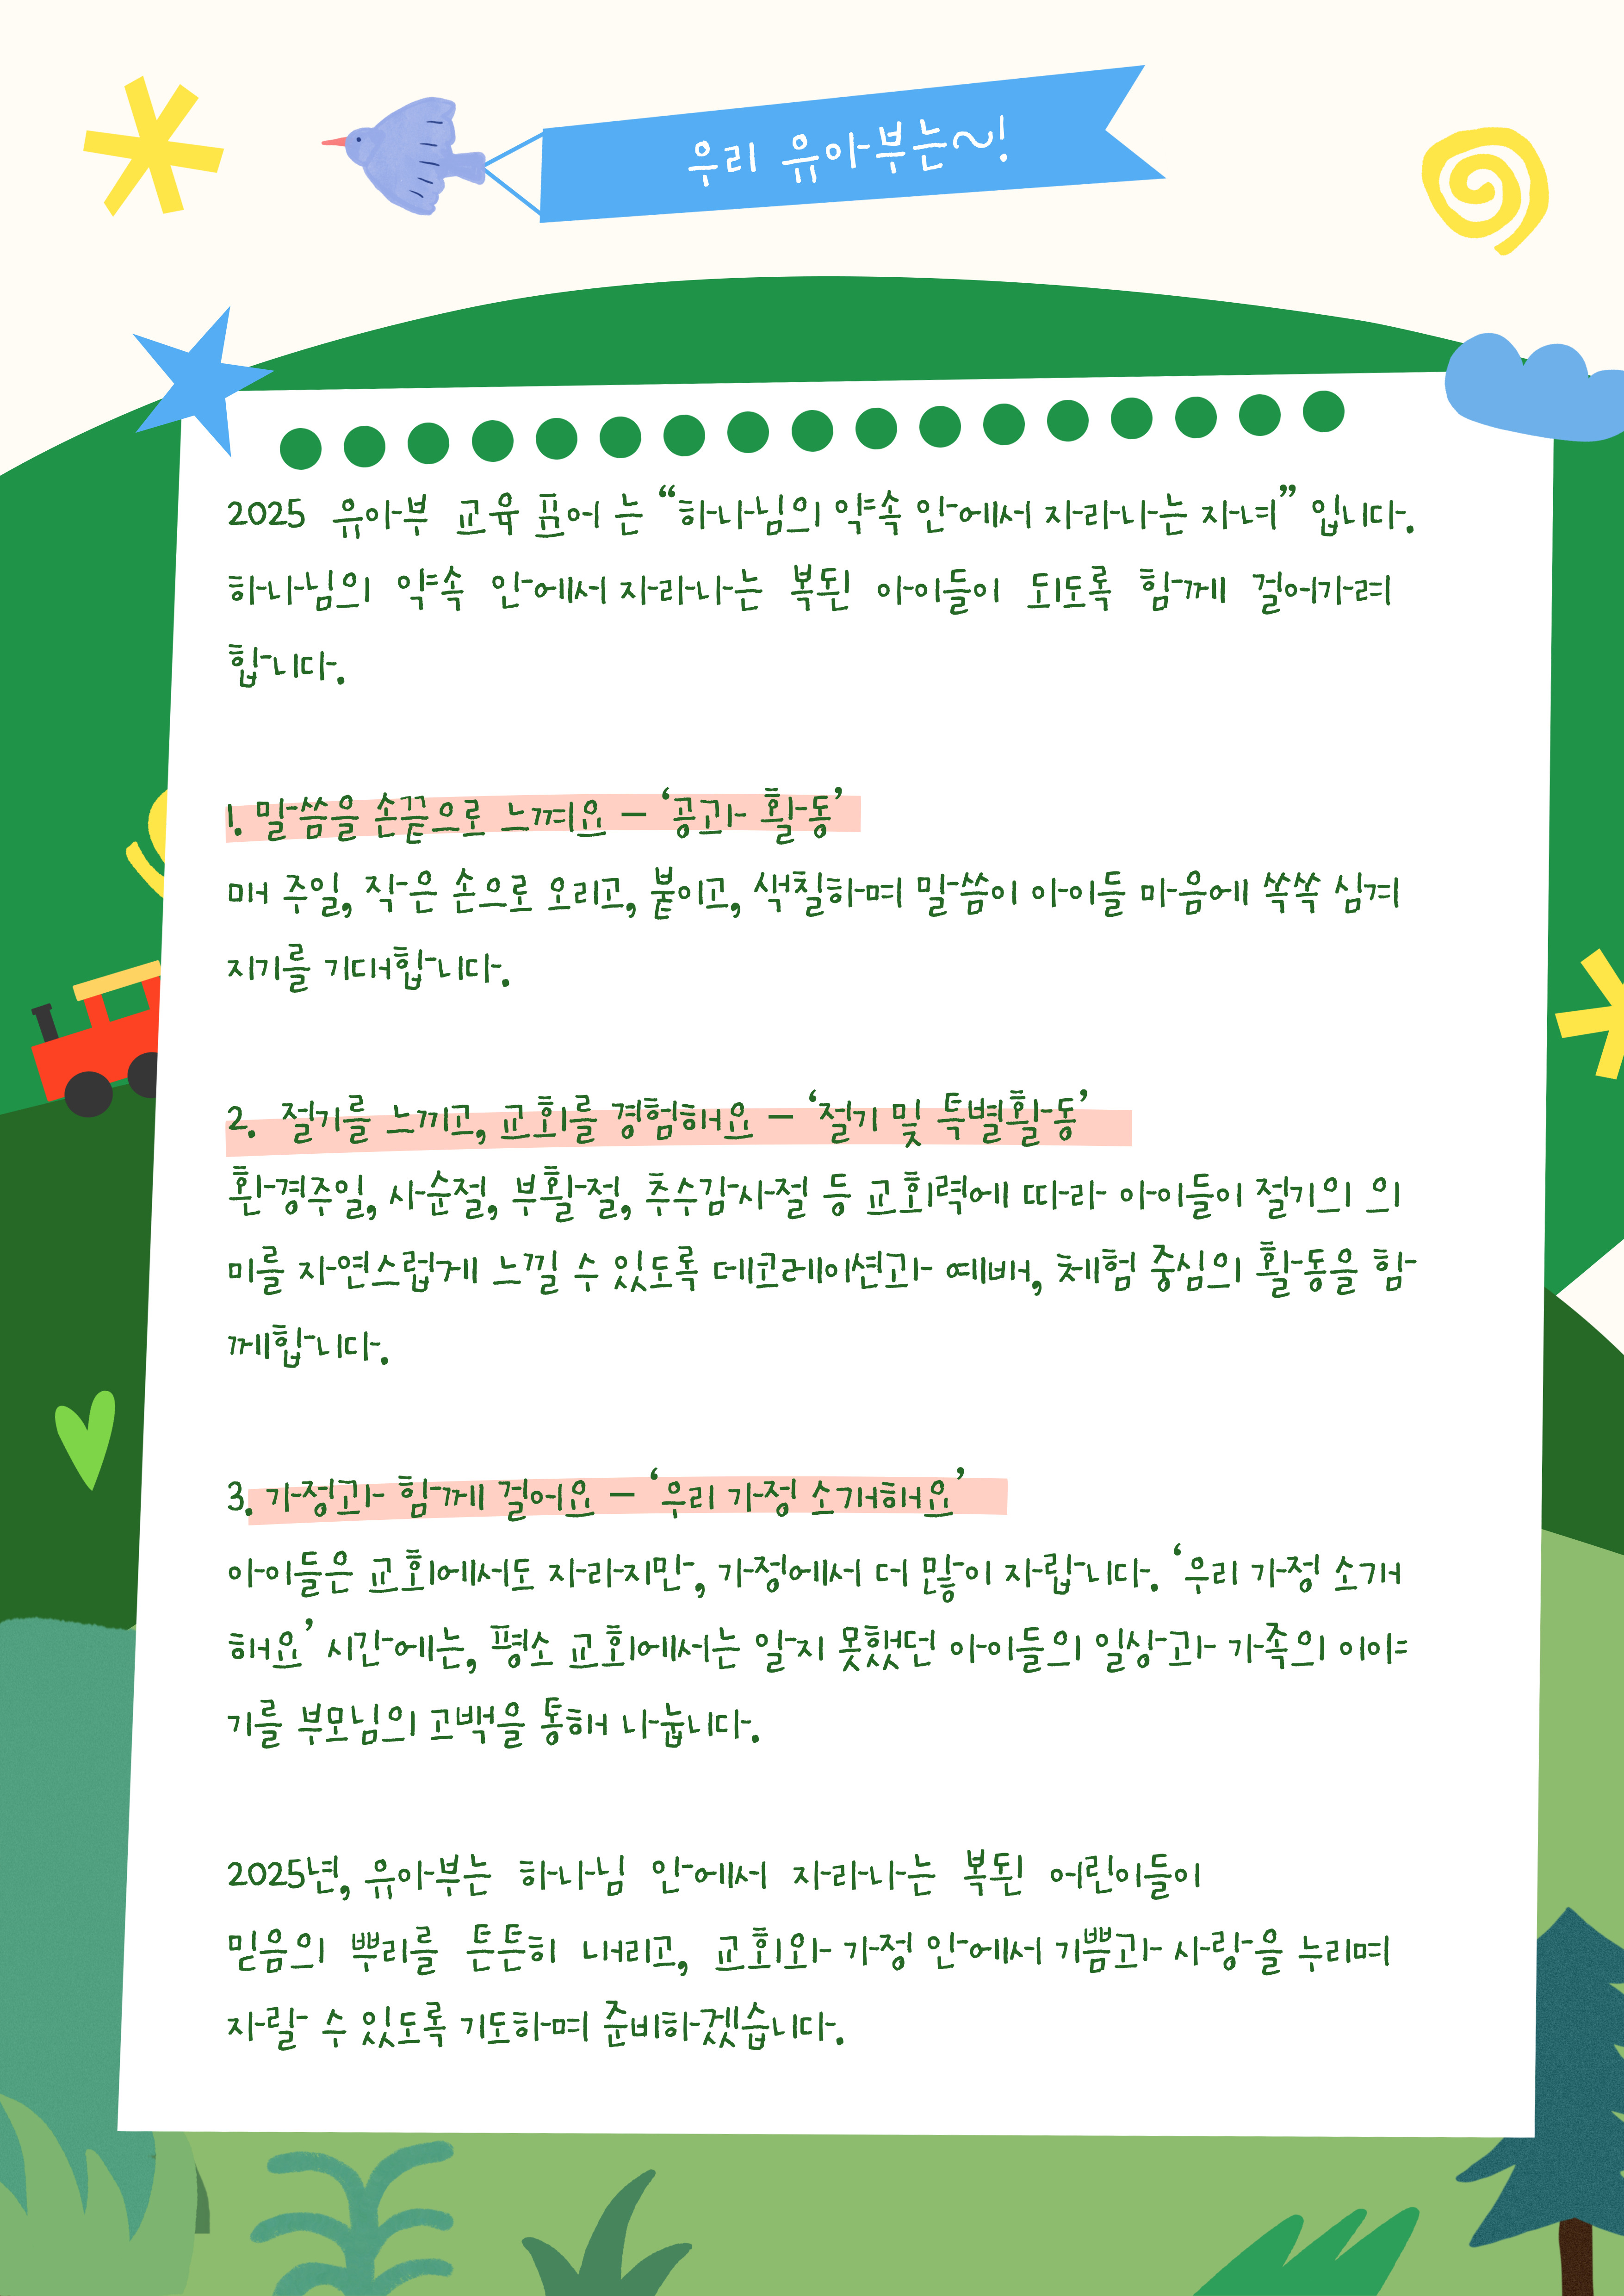 우리 유아부는~!
2025 유아부 교육 표어 는 “하나님의 약속 안에서 자라나는 자녀” 입니다.
하나님의 약속 안에서 자라나는 복된 아이들이 되도록 함께 걸어가려
합니다.
1. 말씀을 손끝으로 느껴요 – ‘공과 활동’
매 주일, 작은 손으로 오리고, 붙이고, 색칠하며 말씀이 아이들 마음에 쏙쏙 심겨
지기를 기대합니다.
2. 절기를 느끼고, 교회를 경험해요 – ‘절기 및 특별활동’
환경주일, 사순절, 부활절, 추수감사절 등 교회력에 따라 아이들이 절기의 의
미를 자연스럽게 느낄 수 있도록 데코레이션과 예배, 체험 중심의 활동을 함
께합니다.
3. 가정과 함께 걸어요 – ‘우리 가정 소개해요’
아이들은 교회에서도 자라지만, 가정에서 더 많이 자랍니다. ‘우리 가정 소개
해요’ 시간에는, 평소 교회에서는 알지 못했던 아이들의 일상과 가족의 이야
기를 부모님의 고백을 통해 나눕니다.
2025년, 유아부는 하나님 안에서 자라나는 복된 어린이들이
믿음의 뿌리를 튼튼히 내리고, 교회와 가정 안에서 기쁨과 사랑을 누리며
자랄 수 있도록 기도하며 준비하겠습니다.